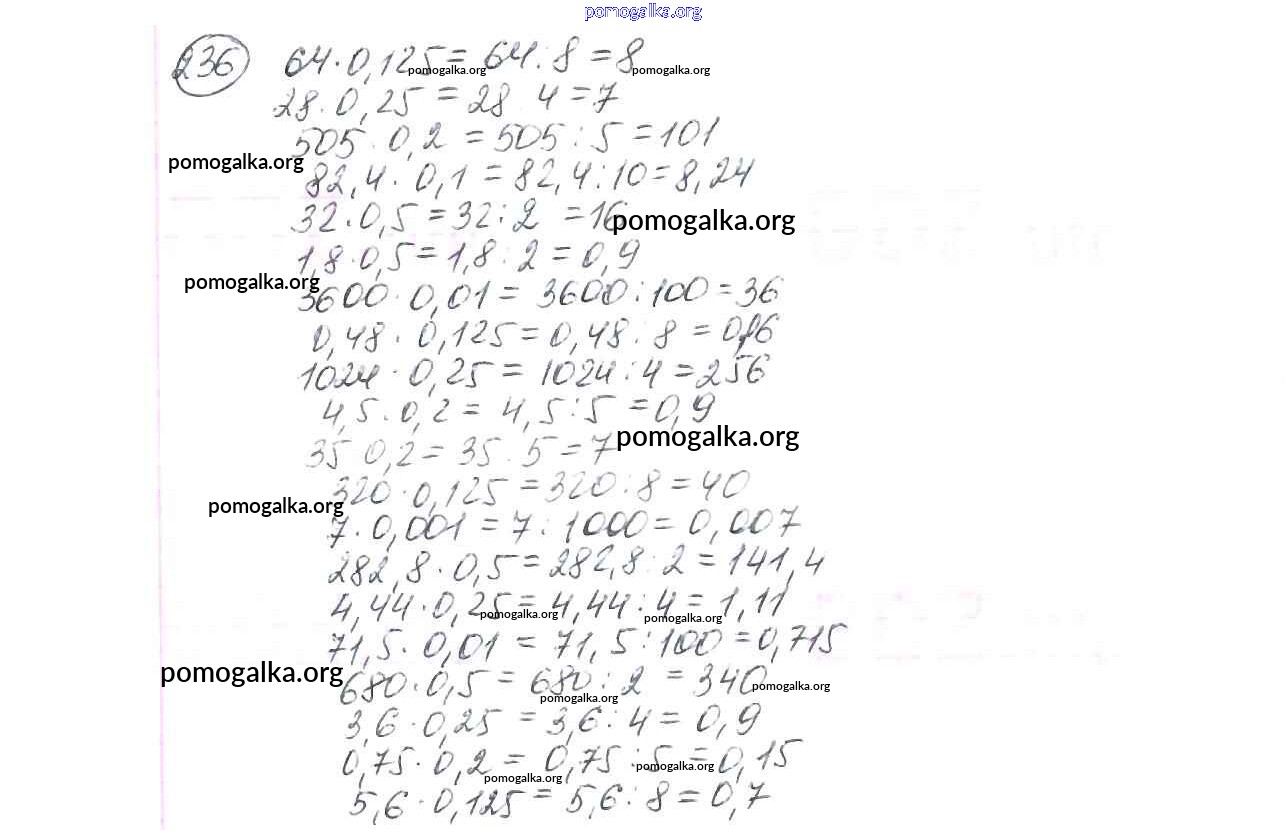 pomogalka.org
236 64 · 0,125 = 64 : 8 = 8
pomogalka.org pomogalka.org
28 · 0,25 = 28 4 = 7
505 · 0,2 = 505 : 5 = 101
pomogalka.org
82,4 · 0,1 = 82,4 : 10 = 8,24
32 · 0,5 = 32 : 2 = 16
pomogalka.org
1,8 · 0,5 = 1,8 : 2 = 0,9
pomogalka.org
3600 · 0,01 = 3600 : 100 = 36
0,48 · 0,125 = 0,48 : 8 = 0,06
1024 · 0,25 = 1024 : 4 = 256
4,5 · 0,2 = 4,5 : 5 = 0,9
pomogalka.org
35 0,2 = 35 . 5 = 7
320 · 0,125 = 320 : 8 = 40
pomogalka.org
7 · 0,001 = 7 : 1000 = 0,007
282,8 · 0,5 = 282,8 : 2 = 141,4
4,44 · 0,25 = 4,44 : 4 = 1,11
pomogalka.org pomogalka.org
71,5 · 0,01 = 71,5 : 100 = 0,715
pomogalka.org
680 · 0,5 = 680 : 2 = 340
pomogalka.org pomogalka.org
3,6 · 0,25 = 3,6 : 4 = 0,9
0,75 · 0,2 = 0,75 : 5 = 0,15
pomogalka.org pomogalka.org
5,6 · 0,125 = 5,6 : 8 = 0,7